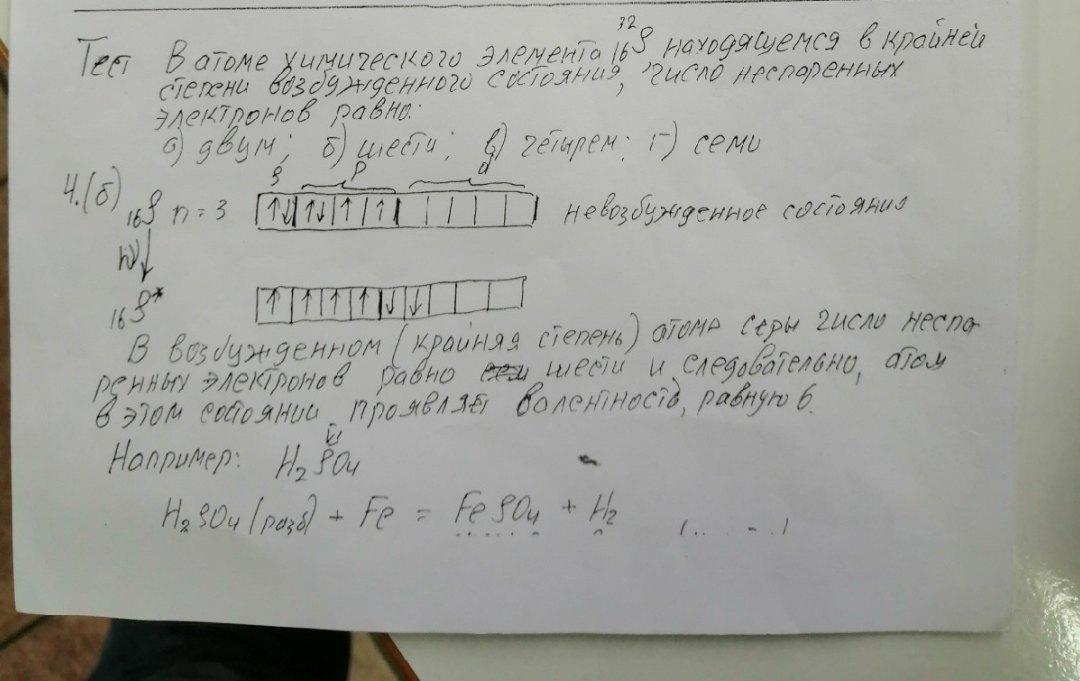 Тест В атоме химического элемента ³²₁₆S находящемся в крайней
степени возбужденного состояния, число неспаренных
электронов равно:
а) двум; б) шести; в) четырем; г) семи
4.(б) s p d
₁₆S n = 3 ↑↓ ↑↓ ↑ ↑ невозбужденное состояния
hν
₁₆S* ↑ ↑ ↑ ↑ ↓ ↓
В возбужденном (крайняя степень) атома серы число неспа
ренных электронов равно шести и следовательно, атом
в этом состоянии проявляет валентность, равную 6.
Например: H₂SO₄
H₂SO₄ (разб) + Fe = FeSO₄ + H₂